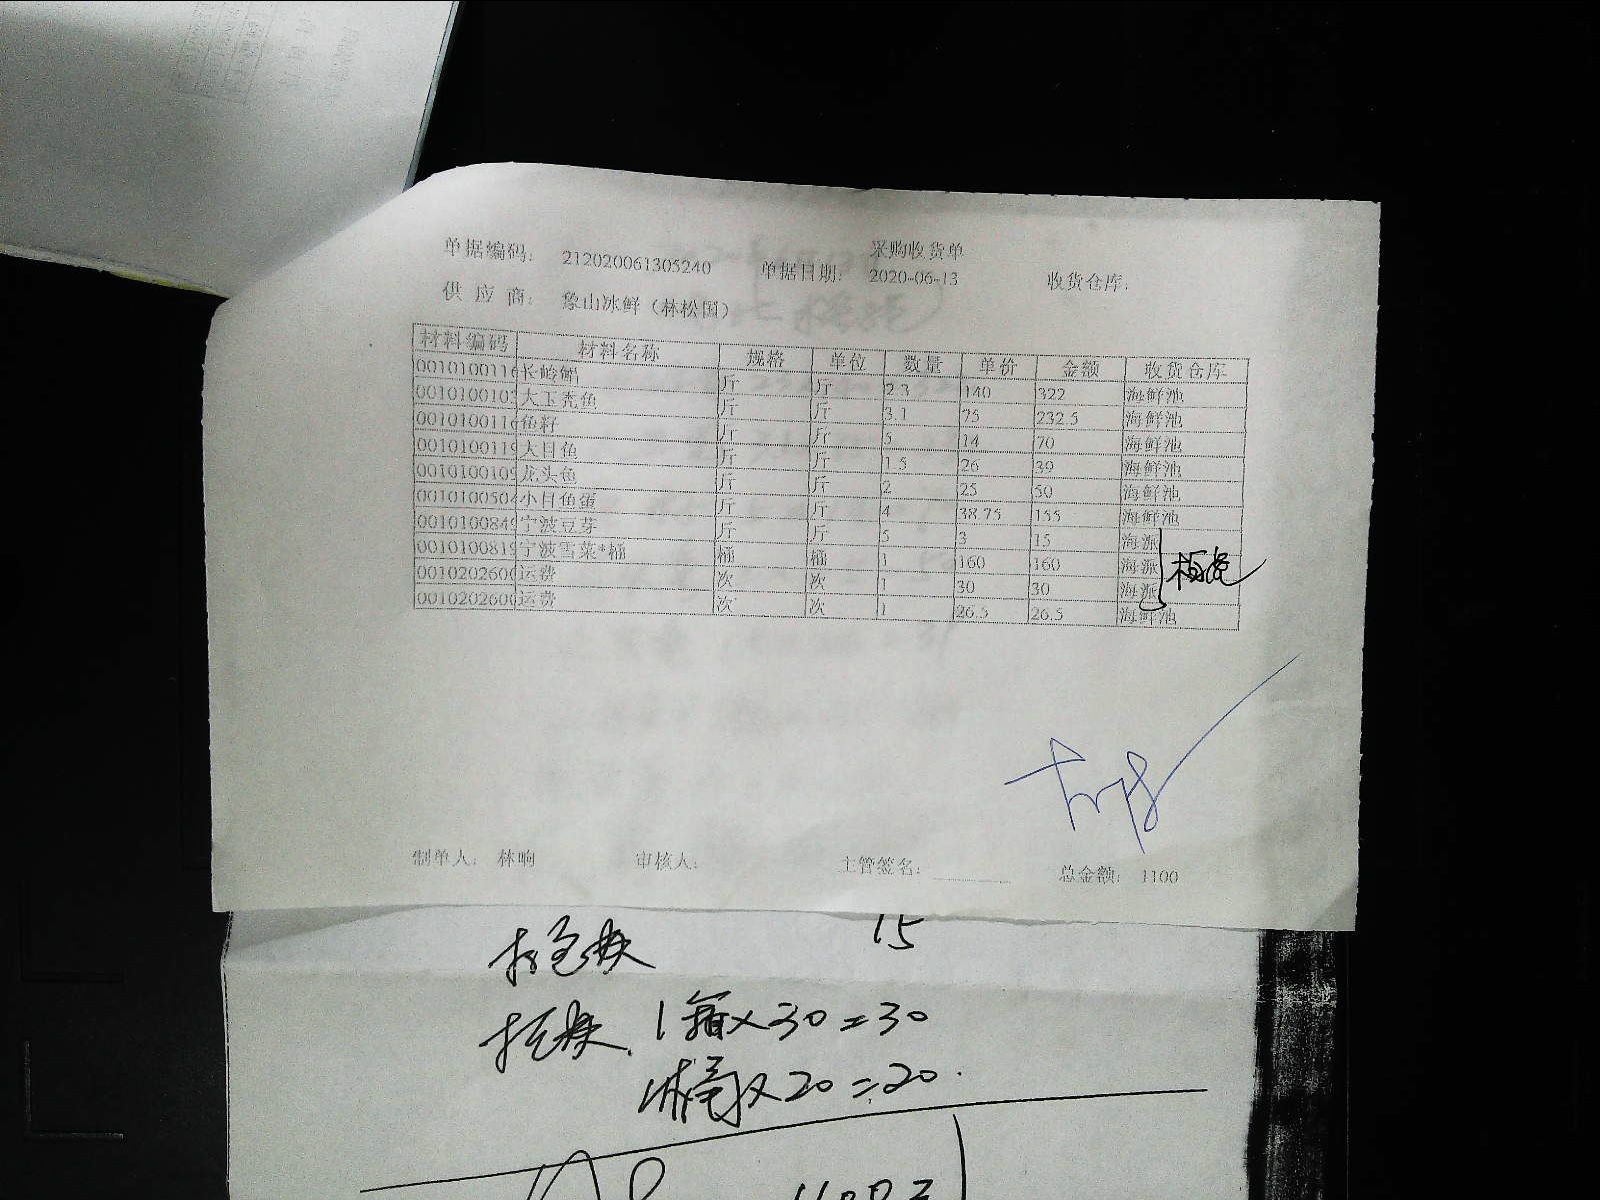 采购收货单
单据编码: 212020061305240 单据日期: 2020-06-13 收货仓库:
供应商: 象山冰鲜（林松国）
材料编码 材料名称 规格 单位 数量 单价 金额 收货仓库
0010100116 长岭鲳 斤 斤 2.3 140 322 海鲜池
001010010 大玉秃鱼 斤 斤 3.1 75 232.5 海鲜池
0010100116 鱼籽 斤 斤 5 14 70 海鲜池
001010011 大目鱼 斤 斤 1.5 26 39 海鲜池
001010010 龙头鱼 斤 斤 2 25 50 海鲜池
001010050 小目鱼蛋 斤 斤 4 38.75 155 海鲜池
001010084 宁波豆芽 斤 斤 5 3 15 海派
001010081 宁波雪菜*桶 桶 桶 1 160 160 海派
001020260 运费 次 次 1 30 30 海派
001020260 运费 次 次 1 26.5 26.5 海鲜池
制单人: 林响 审核人: 主管签名: 总金额: 1100
15
1箱×30=30
1桶×20=20.